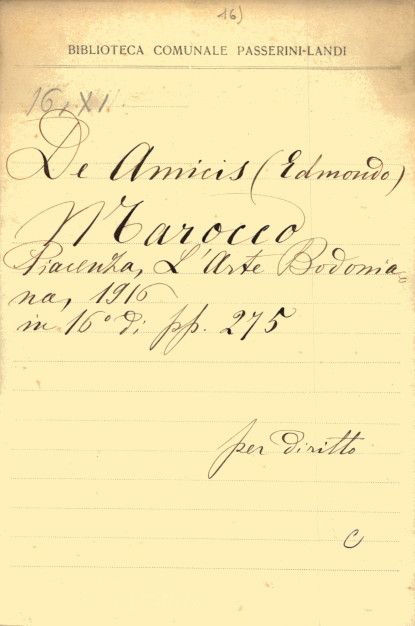 16)
BIBLIOTECA COMUNALE PASSERINI-LANDI
16, XI
De Amicis (Edmondo)
Marocco
Piacenza, L'Arte Bodonia
na, 1916
in 16° di pp. 275
per diritto
C